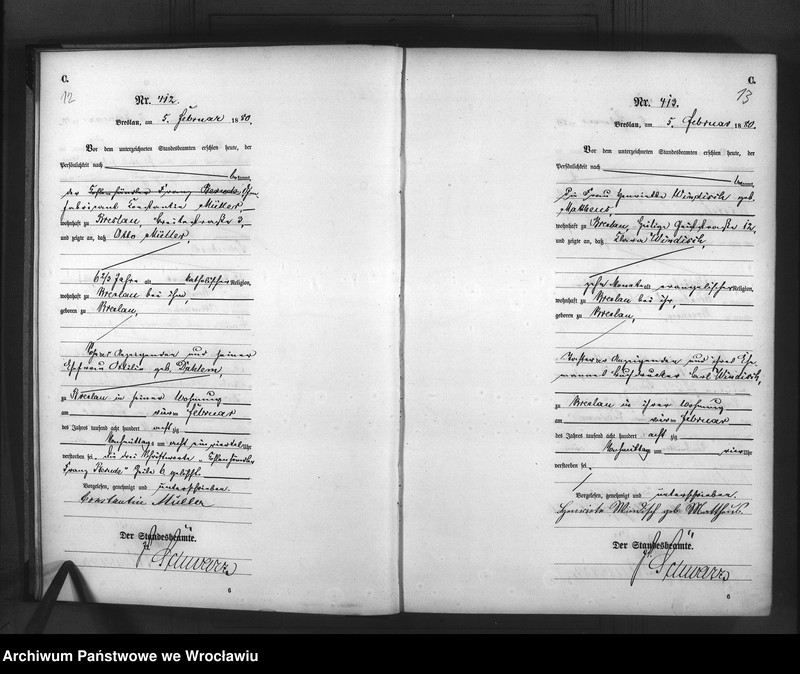 C.
12
Nr. 412.
Breslau, am 5. Februar 1880.
Vor dem unterzeichneten Standesbeamten erschien heute, der
Persönlichkeit nach
bekannt,
der Kohlenhändler Franz
fabrikant Constantin Müller,
wohnhaft zu Breslau, Breitestraße 2,
und zeigte an, daß Otto Müller,
6 2/3 Jahre alt katholischer Religion,
wohnhaft zu Breslau bei ihm
geboren zu Breslau,
Sohn des Anzeigenden und seiner
Ehefrau Ottilie geb.
zu Breslau in seiner Wohnung
am vier Februar
des Jahres tausend acht hundert achtzig
Nachmittags um acht ein viertel Uhr
verstorben sei. Die drei Schriftworte „Kohlenhändler
Franz Zeile 6 gelöscht.
Vorgelesen, genehmigt und unterschrieben.
Constantin Müller
Der Standesbeamte.
Schwarz
6
C.
13
Nr. 413.
Breslau, am 5. Februar 1880.
Vor dem unterzeichneten Standesbeamten erschien heute, der
Persönlichkeit nach
bekannt,
die Frau Henriette Windisch geb.
Matthaeus,
wohnhaft zu Breslau, Heilige Geiststraße 12,
und zeigte an, daß Clara Windisch,
zehn Monate alt evangelischer Religion,
wohnhaft zu Breslau bei ihr,
geboren zu Breslau,
Tochter der Anzeigenden und ihres Ehe
mannes Buchdrucker Carl Windisch,
zu Breslau in ihrer Wohnung
am vier Februar
des Jahres tausend acht hundert achtzig
Nachmittag um vier Uhr
verstorben sei.
Vorgelesen, genehmigt und unterschrieben.
Henriete Windisch geb Matthäus.
Der Standesbeamte.
Schwarz
6
Archiwum Państwowe we Wrocławiu